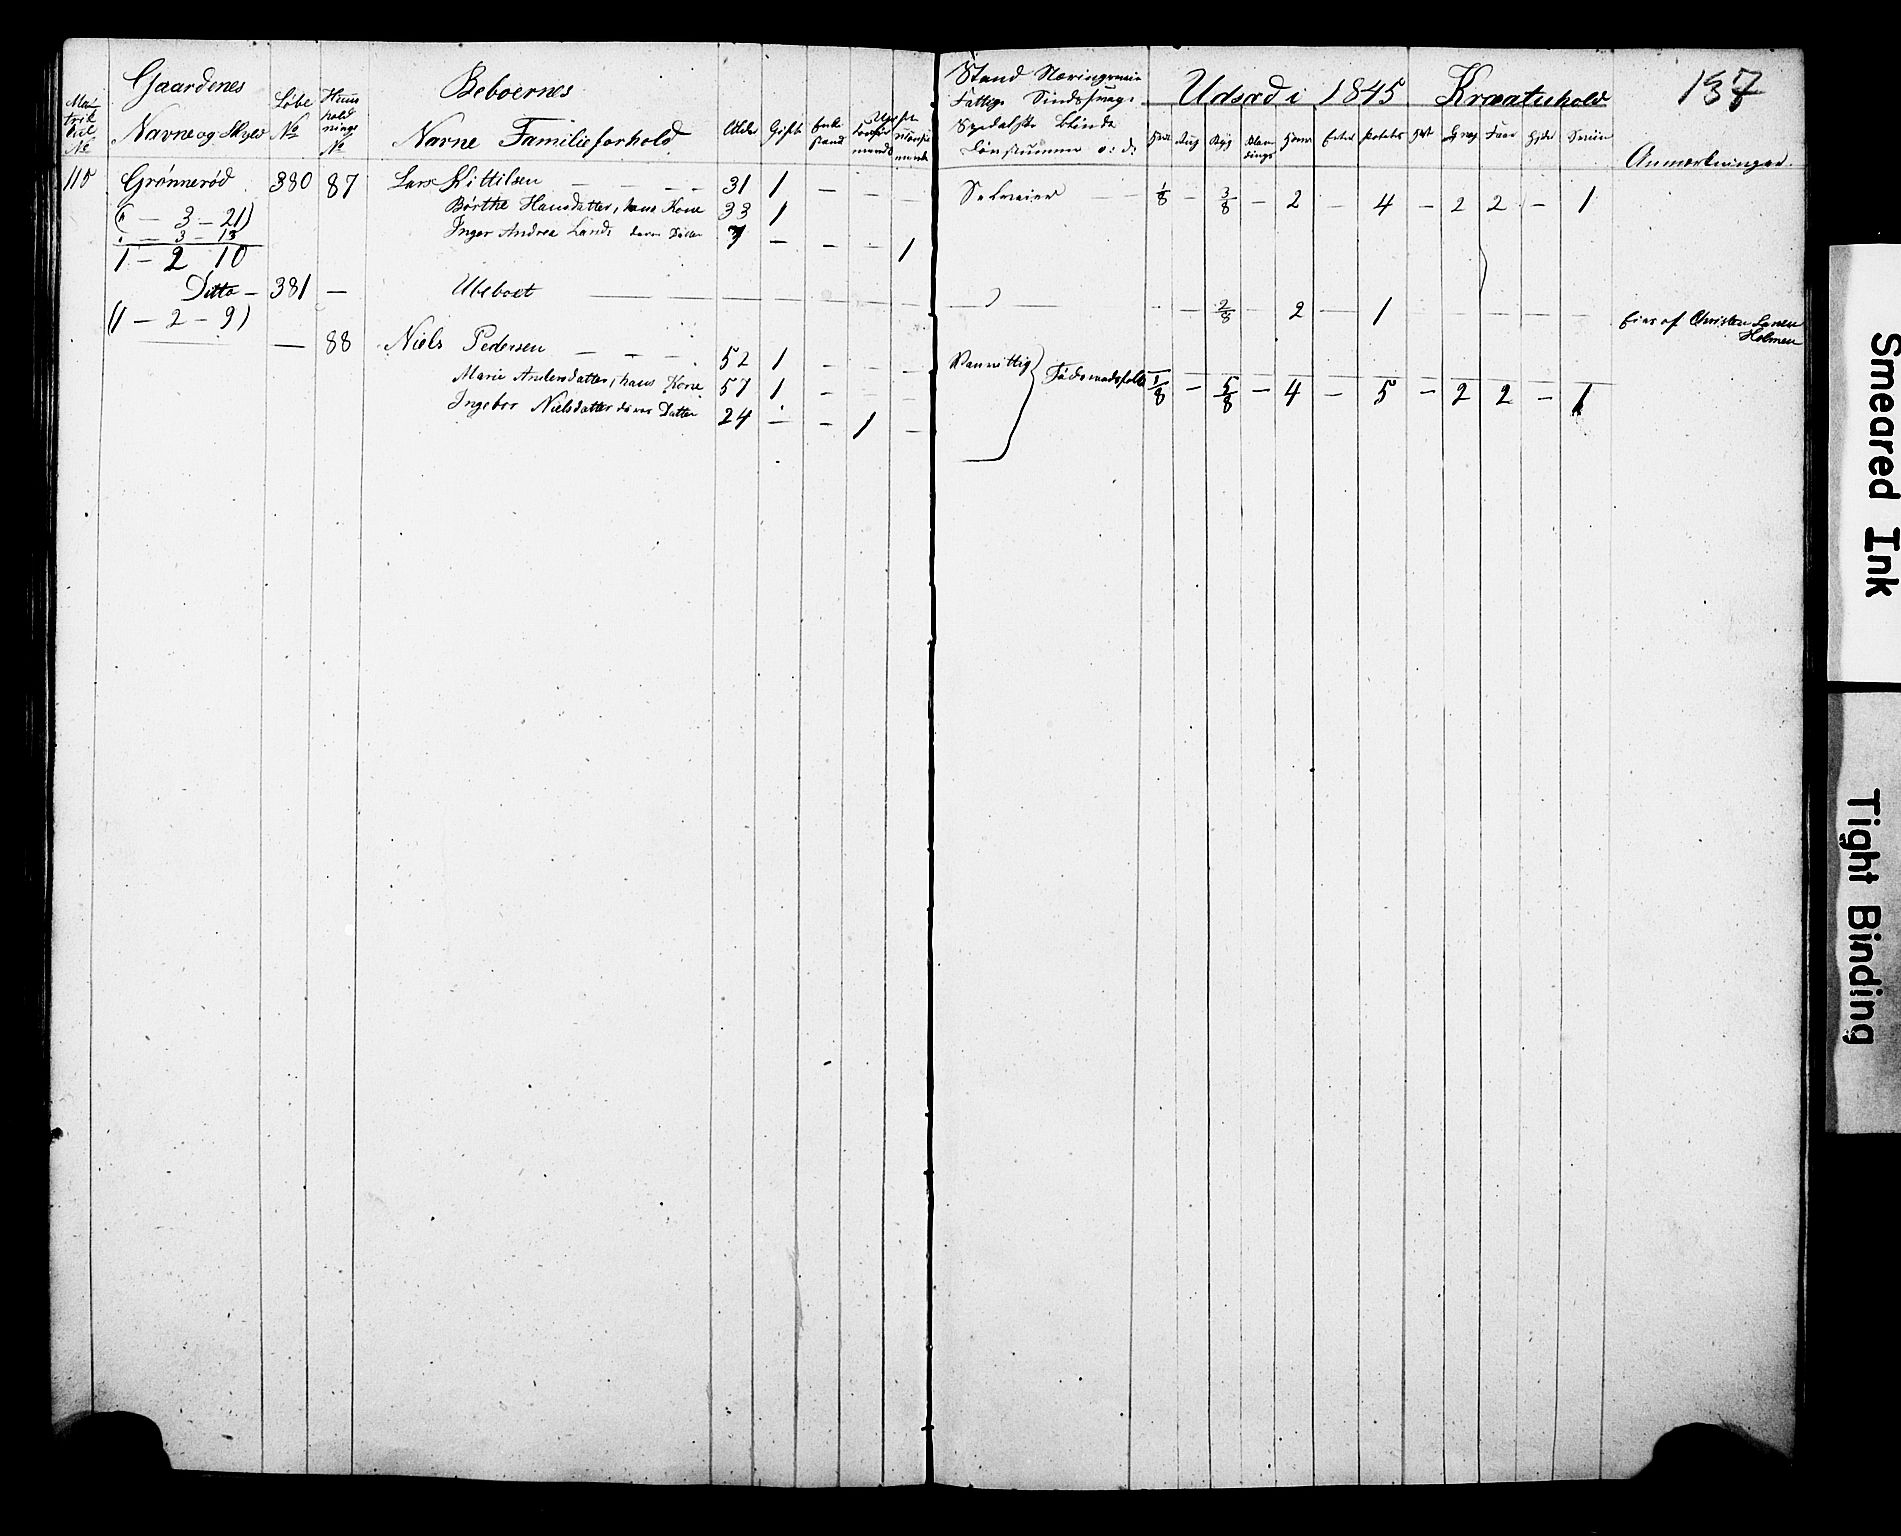 Gaardenes
Navne og Skyld
Løbe
No
Huus
hold
nings
No
Ma
trik
kul
No
Beboernes
Navne Familieforhold
Alder
Gift
Enke
stand
Ugifte
Stand Næringsveie
Fattige Sindssvage
Spedalske blinde
Døvstumme o: d:
Udsæd i 1845
Byg
Blan-
dings
Havre
Erter
Poteter
Kreaturhold
Faar
Sviin
137
Anmærkninger
115 Grønnerød 380 87 Lars Kittilsen — — — — 31 1 — — — Selveier — — 1/8 — 3/8 — 2 — 4 — 2 2 — 1
( " — 3 — 21) Børthe Hansdatter, hans Kone 33 1
. — 3 — 13 Inger Andrea Lands deres Datter 7 — — — 1
1 — 2 10
Ditto — 381 — Ubeboet — — — — — — — — 2/8 — 2 — 1 — — — — —
(1 — 2 — 9) Eies af Christen Larsen
Holmen
— — 88 Niels Pedersen — — — 52 1 — — — Vanvittig
Marie Andersdatter, hans Kone 57 1 — — — Føderaadsfolk 1/8 — 5/8 — 4 — 5 — 2 2 — 1
Ingebor Nielsdatter deres Datter 24 — — 1 —
Smeared Ink
Tight Binding